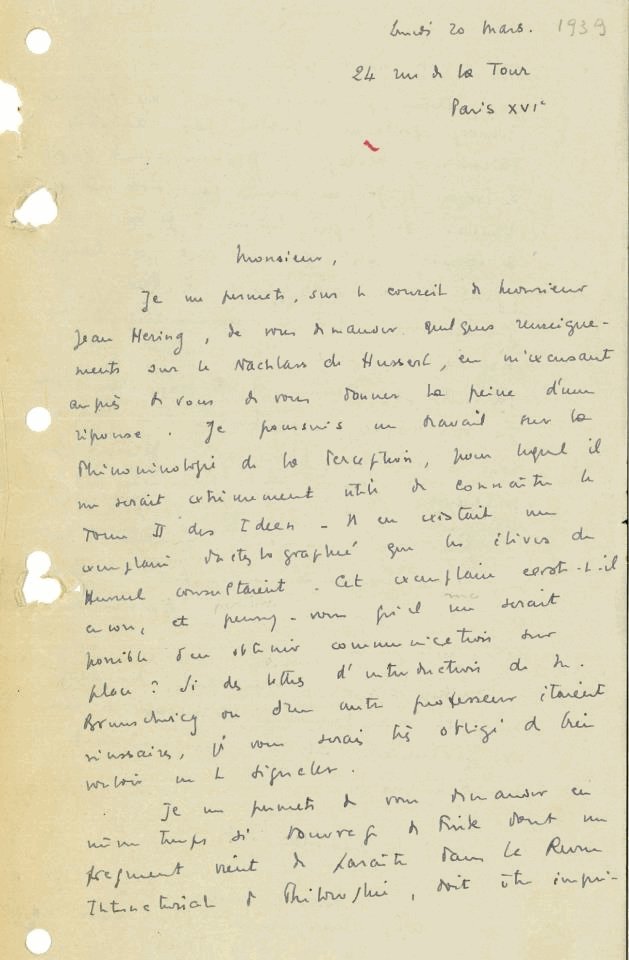 Lundi 20 Mars. 1939
24 rue de la Tour
Paris XVIe
Monsieur,
Je me permets, sur le conseil de Monsieur
Jean Hering, de vous demander quelques renseigne-
ments sur le Nachlass de Husserl, en m'excusant
auprès de vous de vous donner la peine d'une
réponse. Je poursuis un travail sur la
Phénoménologie de la Perception, pour lequel il
me serait extrêmement utile de connaître le
Tome II des Ideen - Il en existait un
exemplaire dactylographié que les élèves de
Husserl consultaient. Cet exemplaire existe-t-il
encore, et pensez-vous qu'il me serait
possible d'en obtenir communication sur
place ? Si des lettres d'introduction de M.
Brunschvicg ou d'un autre professeur étaient
nécessaires, je vous serais très obligé de bien
vouloir me le signaler.
Je me permets de vous demander en
même temps si l'ouvrage de Fink dont un
fragment vient de paraître dans la Revue
Internationale de Philosophie, doit être impri-